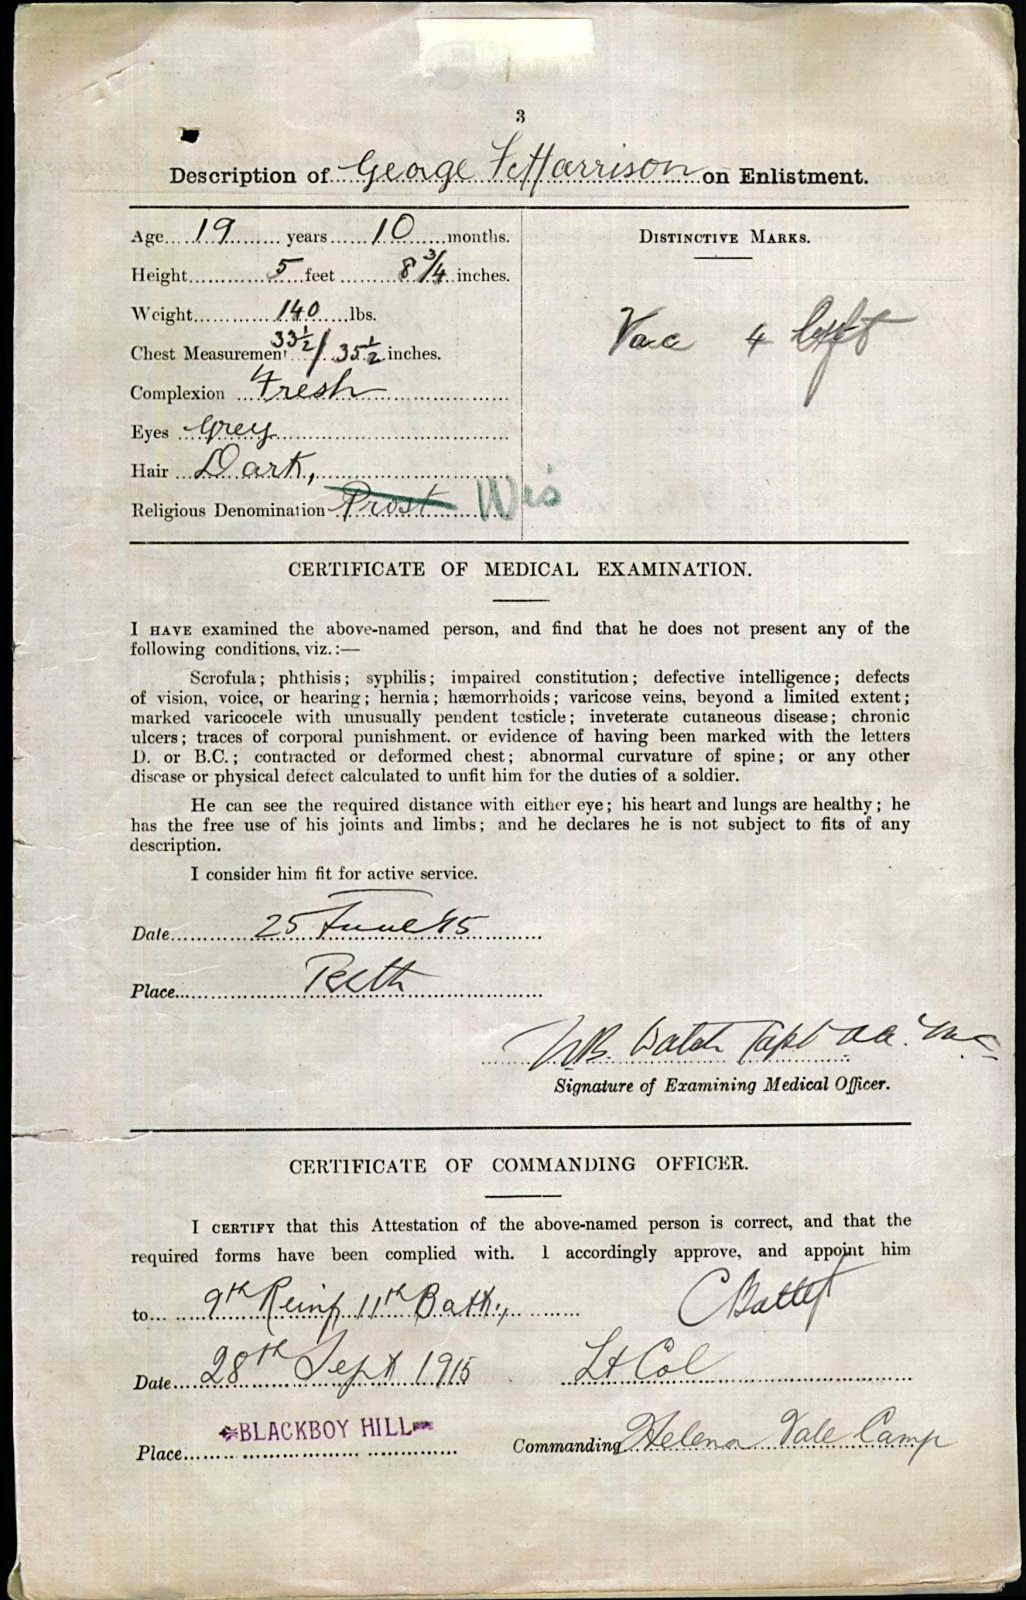 3
Description of George F Harrison on Enlistment.
Age 19 years 10 months.
Height 5 feet 8 3/4 inches.
Weight 140 lbs.
Chest Measurement 33 1/2 / 35 1/2 inches.
Complexion Fresh
Eyes Grey
Hair Dark,
Religious Denomination Prost Wes
DISTINCTIVE MARKS.
Vac 4 left
CERTIFICATE OF MEDICAL EXAMINATION.
I HAVE examined the above-named person, and find that he does not present any of the
following conditions, viz.:—
Scrofula; phthisis; syphilis; impaired constitution; defective intelligence; defects
of vision, voice, or hearing; hernia; hæmorrhoids; varicose veins, beyond a limited extent;
marked varicocele with unusually pendent testicle; inveterate cutaneous disease; chronic
ulcers; traces of corporal punishment. or evidence of having been marked with the letters
D. or B.C.; contracted or deformed chest; abnormal curvature of spine; or any other
disease or physical defect calculated to unfit him for the duties of a soldier.
He can see the required distance with either eye; his heart and lungs are healthy; he
has the free use of his joints and limbs; and he declares he is not subject to fits of any
description.
I consider him fit for active service.
Date 25 June 15
Place Perth
Capt
Signature of Examining Medical Officer.
CERTIFICATE OF COMMANDING OFFICER.
I CERTIFY that this Attestation of the above-named person is correct, and that the
required forms have been complied with. I accordingly approve, and appoint him
to 9th Reinf 11th Batt.,
C Battye
Date 28th Sept 1915 Lt Col
Place BLACKBOY HILL Commanding Helena Vale Camp